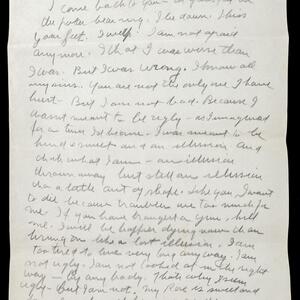 I come back to you
the polar bear rug. I lie down. I kiss
your feet. I am not afraid
anymore. I was worse than
I was. But I was wrong. I know all
my sins. You are not the only one I have
hurt - But I am not bad. Because I
wasn't meant to be ugly - as I
for a time I've become. I was meant to be
kind & sweet and an illusion. And
that's what I am - an illusion
thrown away but still an illusion
out of shape. Like you, I want
to die because troubles are too much for
me. If you have brought a gun, kill
me. I will be happier dying now than
living on like a lost illusion. I am
too tired to live very long anyway. I am
not ugly. I am not looked at in the right
way - by anybody. That's why I seem
ugly - But I am not, my face is sweet and